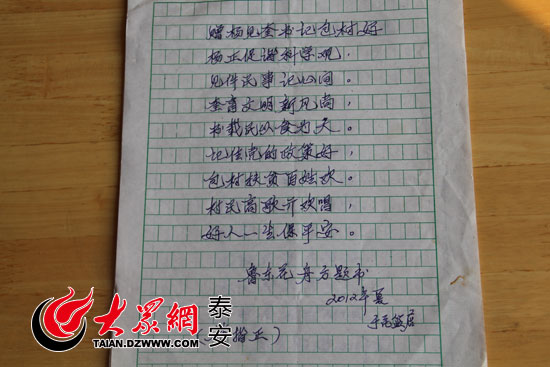 赠杨见奎书记包村好
杨正促谐科学观，
见件民事记心间。
奎育文明新风尚，
书载民以食为天。
记住党的政策好，
包村扶贫百姓欢。
村民高歌齐欢唱，
好人一生保平安。
鲁东花 舟方题书
2012年夏
于 居
( 指正)
大众網 泰安
TAIAN.DZWWW.COM